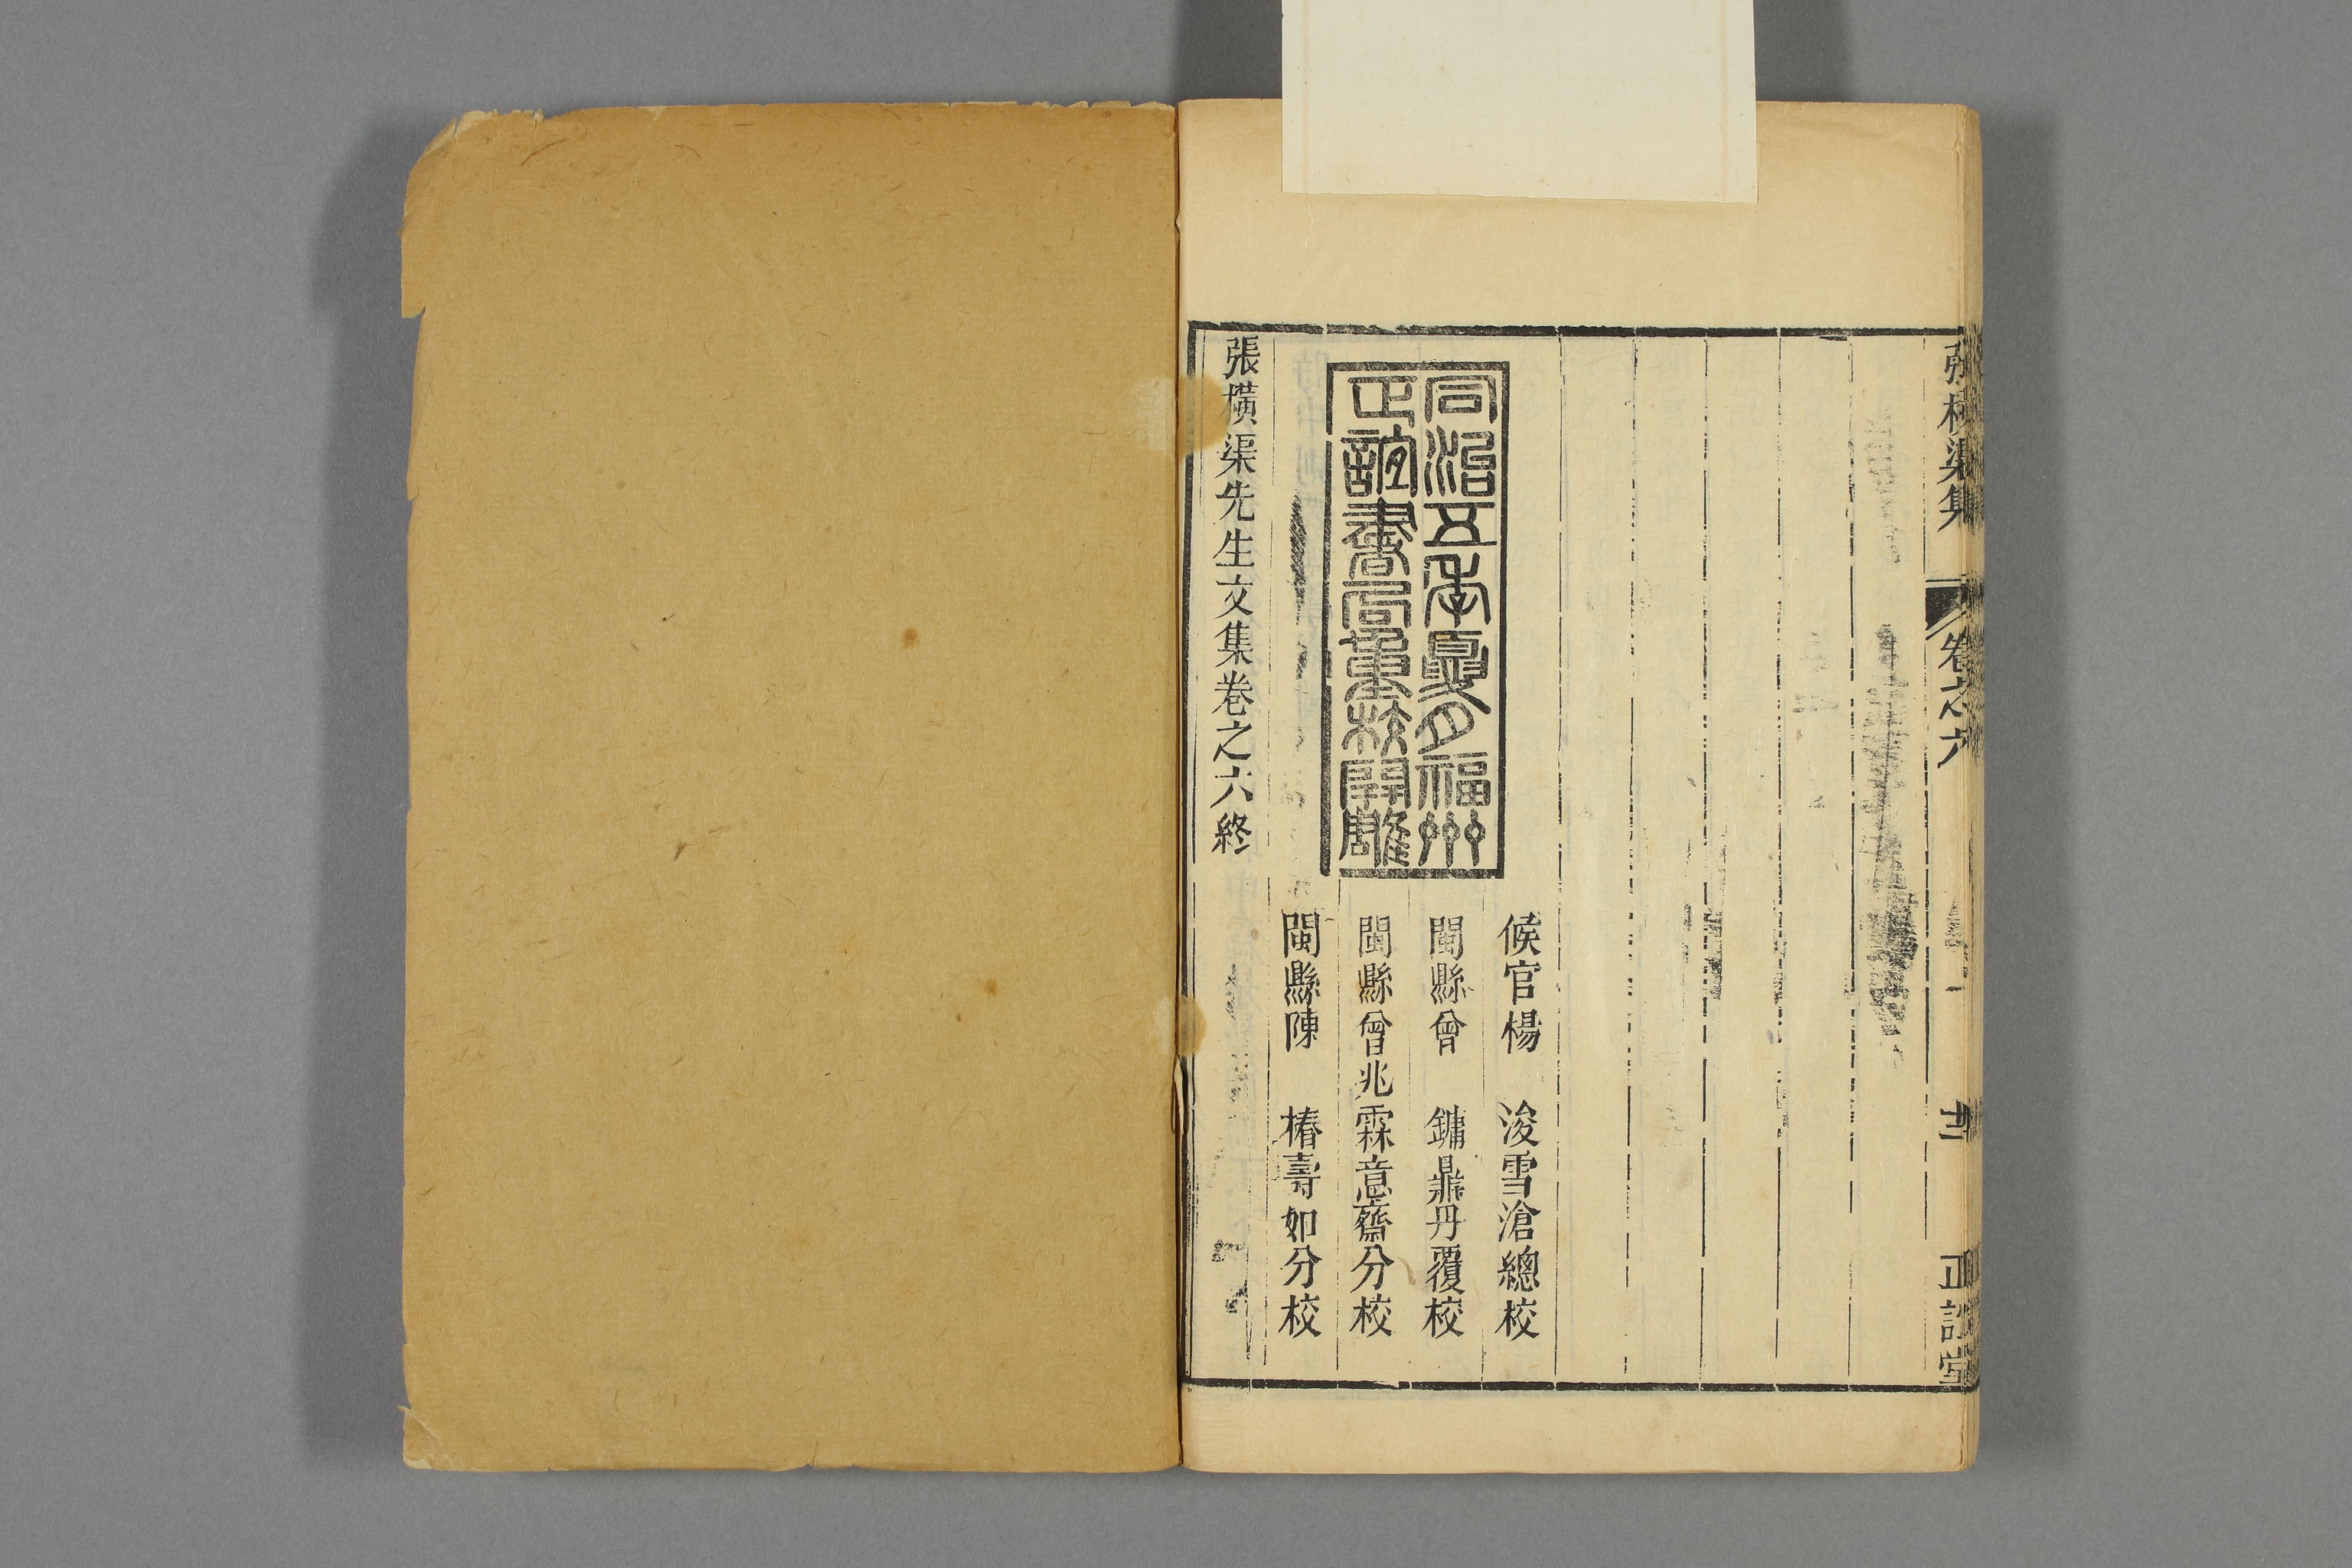 張橫渠集
卷之六
正誼堂
同治五年夏月福州
正誼書局重校開雕
候官楊 浚雪滄總校
閩縣曾 鏞鼎丹覆校
閩縣曾兆霖意齋分校
閩縣陳 椿壽如分校
張橫渠先生文集卷之六終